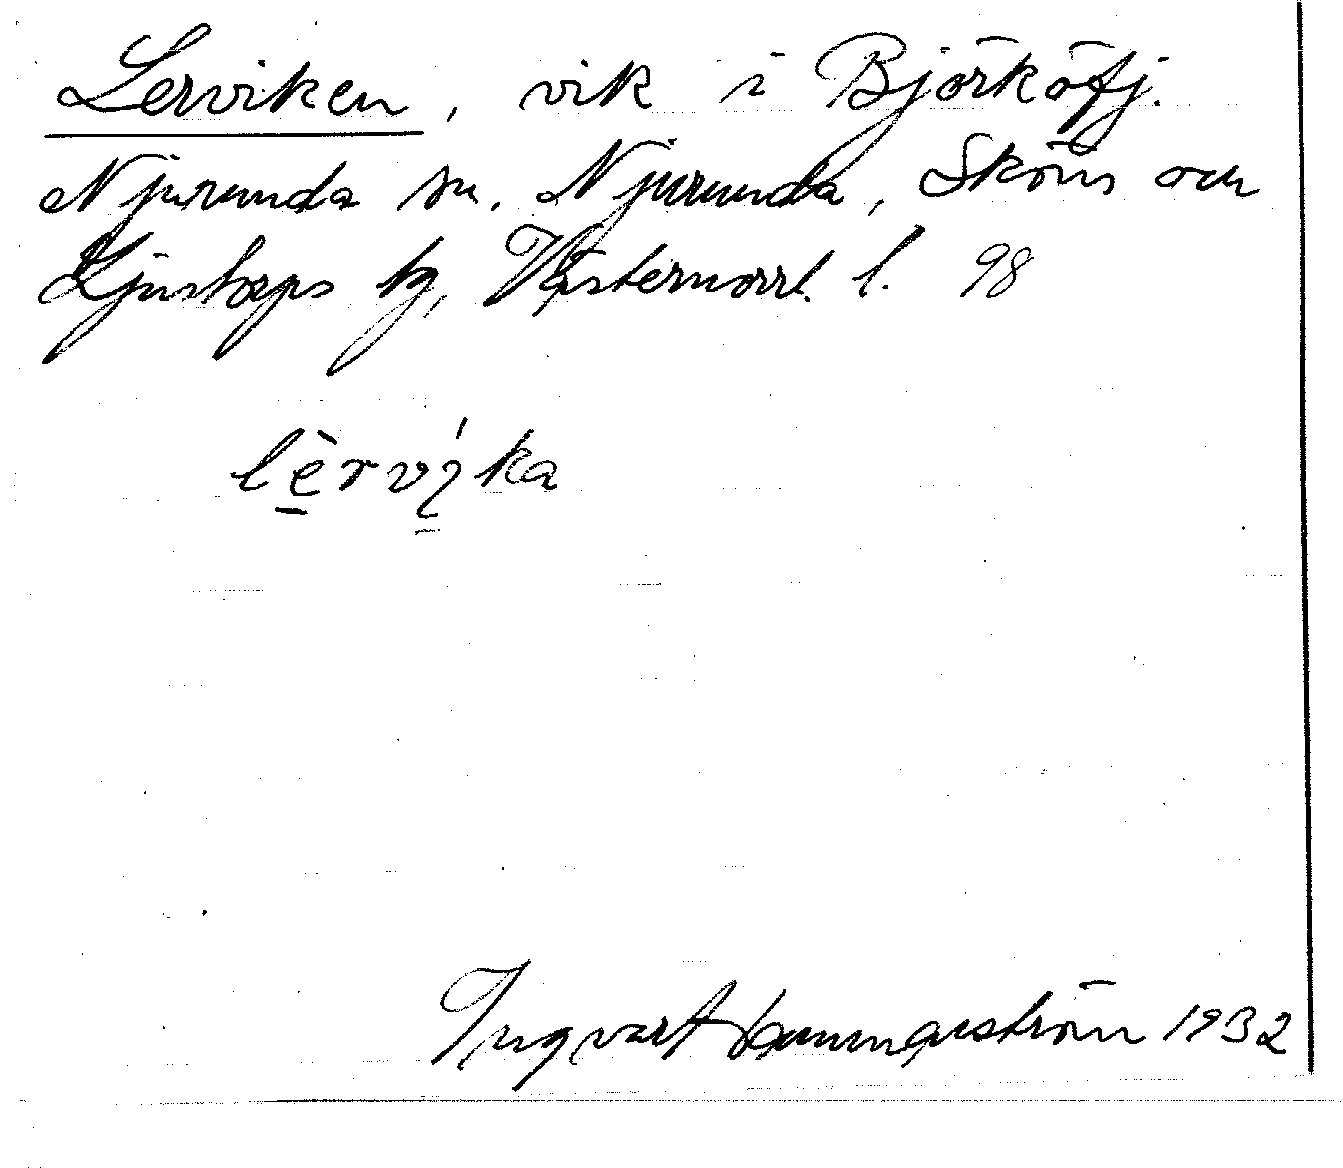 Lerviken, vik i Björköfj.
Njurunda sn. Njurunda, Sköns och
Ljustorps tg, Västernorrl. l. 98
lèrvíka
Ingvart Hammarström 1932